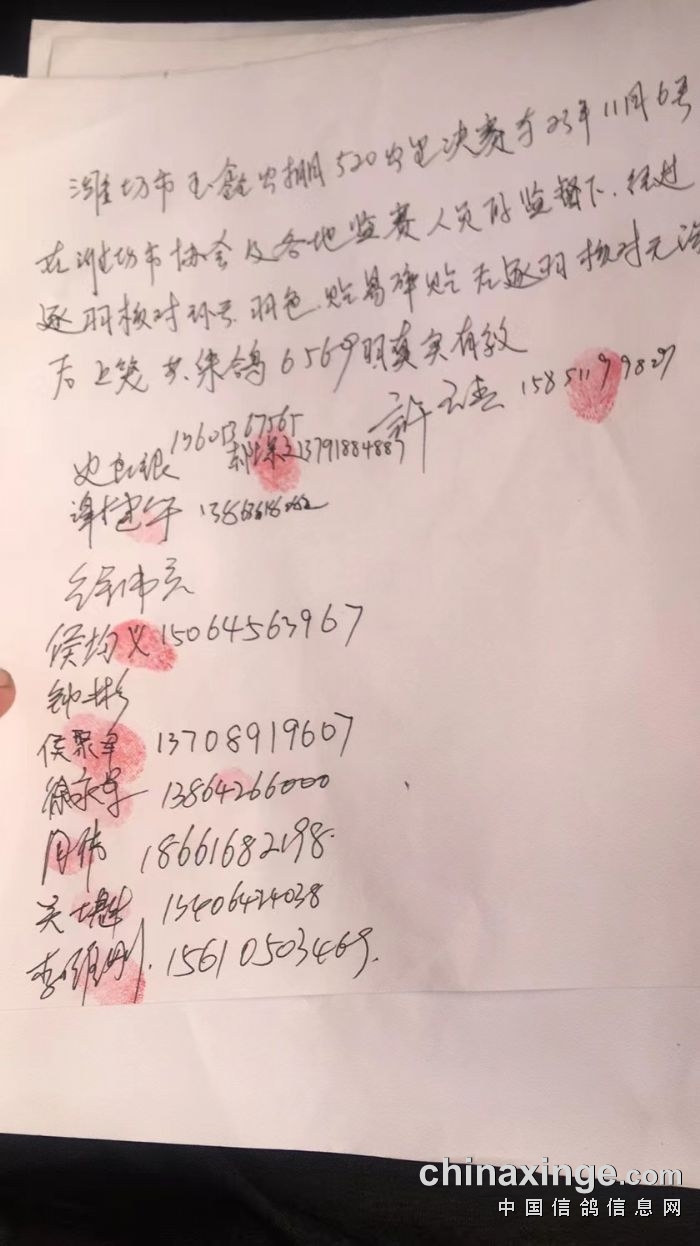 潍坊市玉鑫公棚520公里决赛于23年11月6号
在潍坊市协会及各地监赛人员的监督下.经过
逐羽核对环号.羽色.后逐羽核对无误
后上笼共集鸽6569羽真实有效
15851199827
史良银
13791884887
谭建午
侯均义 15064563967
钟彬
侯聚军 13708919607
13864266000
周伟 18661682198.
吴 13406424038
李维刚. 15610503469.
chinaxinge.com
中国信鸽信息网